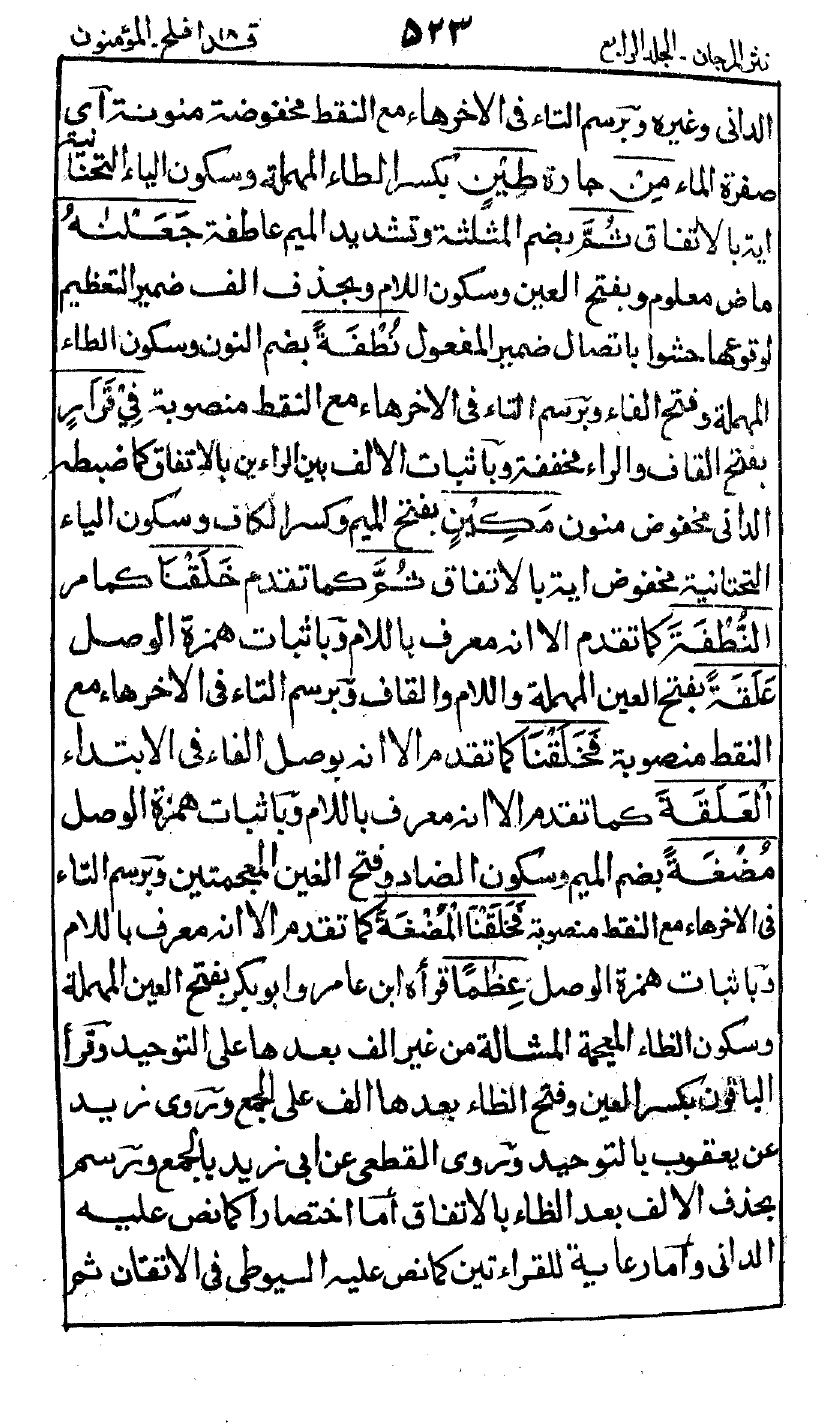 نثر المرجان - الجلد الرابع ٥٢٣ قد افلح ١٨ - المؤمنون
الدانى وغيره وبرسم التاء فى الاخرهاء مع النقط مخفوضة منونة اى
صفرة الماء مِنْ جارة طِيْنٍ بكسر الطاء المهملة وسكون الياء التحتانية
اية بالاتفاق ثُمَّ بضم المثلثة وتشديد الميم عاطفة جَعَلْنٰهُ
ماض معلوم وبفتح العين وسكون اللام وبحذف الف ضمير التعظيم
لوقوعها حشوا باتصال ضمير المفعول نُطْفَةً بضم النون وسكون الطاء
المهملة وفتح الفاء وبرسم التاء فى الاخرهاء مع النقط منصوبة فِيْ قَرَارٍ
بفتح القاف والراء مخففة وباثبات الالف بين الراءين بالاتفاق كما ضبطه
الدانى مخفوض منون مَكِيْنٍ بفتح الميم وكسر الكاف وسكون الياء
التحتانية مخفوض اية بالاتفاق ثُمَّ كما تقدم خَلَقْنَا كما مر
النُّطْفَةَ كما تقدم الا انه معرف باللام وباثبات همزة الوصل
عَلَقَةً بفتح العين المهملة واللام والقاف وبرسم التاء فى الاخرهاء مع
النقط منصوبة فَخَلَقْنَا كما تقدم الا انه بوصل الفاء فى الابتداء
الْعَلَقَةَ كما تقدم الا انه معرف باللام وباثبات همزة الوصل
مُضْغَةً بضم الميم وسكون الضاد وفتح الغين المعجمتين وبرسم التاء
فى الاخرهاء مع النقط منصوبة فَخَلَقْنَا الْمُضْغَةَ كما تقدم الا انه معرف باللام
وباثبات همزة الوصل عِظٰمًا قرأه ابن عامر وابوبكر بفتح العين المهملة
وسكون الظاء المعجمة المشالة من غير الف بعدها على التوحيد وقرأ
الباقون بكسر العين وفتح الظاء بعدها الف على الجمع وروى زيد
عن يعقوب بالتوحيد وروى القطعى عن ابى زيد بالجمع ورسم
بحذف الالف بعد الظاء بالاتفاق أما اختصارا كما نص عليه
الدانى وأما رعاية للقراءتين كما نص عليه السيوطى فى الاتقان ثم